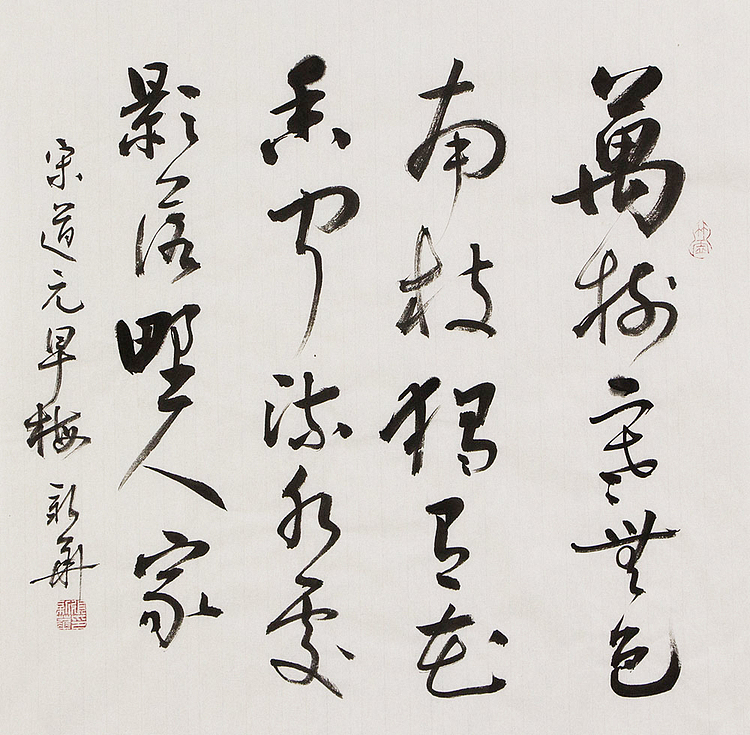 萬樹寒無色
南枝獨有花
香聞流水處
影落野人家
宋道元早梅 新華